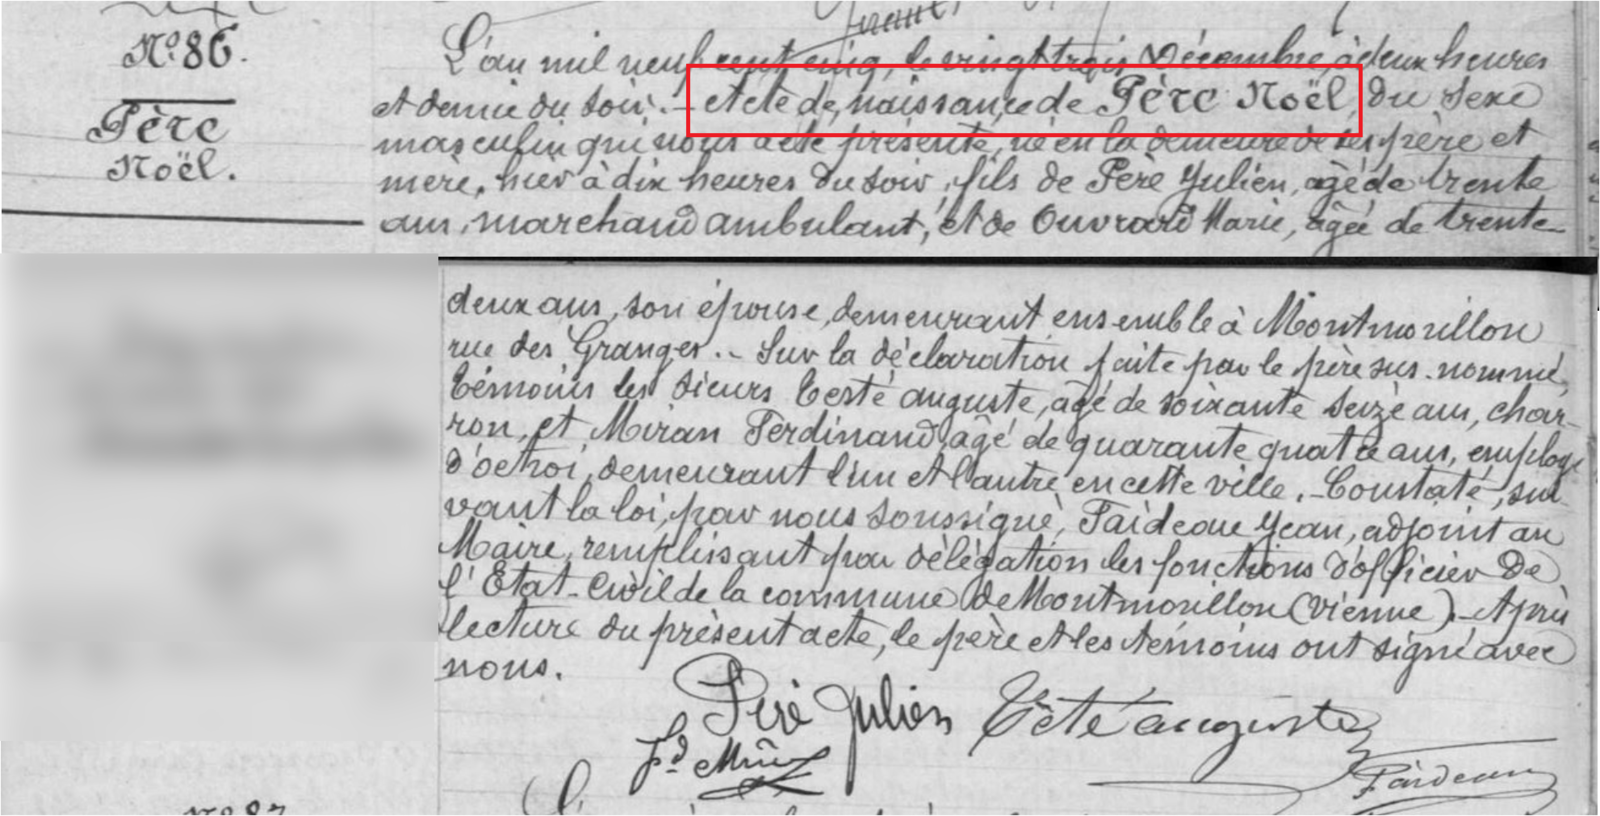 N° 86.
Père
Noël.
L'an mil neuf cent cinq, le vingt trois Décembre, à deux heures
et demie du soir. - Acte de naissance de Père Noël, du sexe
masculin qui nous a été présenté, né en la demeure de ses père et
mère, hier à dix heures du soir, fils de Père Julien, âgé de trente
ans, marchand ambulant, et de Ouvrard Marie, âgée de trente-
deux ans, son épouse, demeurant ensemble à Montmorillon
rue des Granges. - Sur la déclaration faite par le père sus-nommé,
témoins les sieurs Testé Auguste, âgé de soixante seize ans, char-
ron, et Miran Ferdinand, âgé de quarante quatre ans, employé
d'octroi, demeurant l'un et l'autre en cette ville. - Constaté, sui-
vant la loi, par nous soussigné, Faideau Jean, adjoint au
Maire, remplissant par délégation les fonctions d'officier de
l'Etat-Civil de la commune de Montmorillon (Vienne). - Après
lecture du présent acte, le père et les témoins ont signé avec
nous.
Père Julien Tété auguste
Fd Miran
Faideau
N° 87